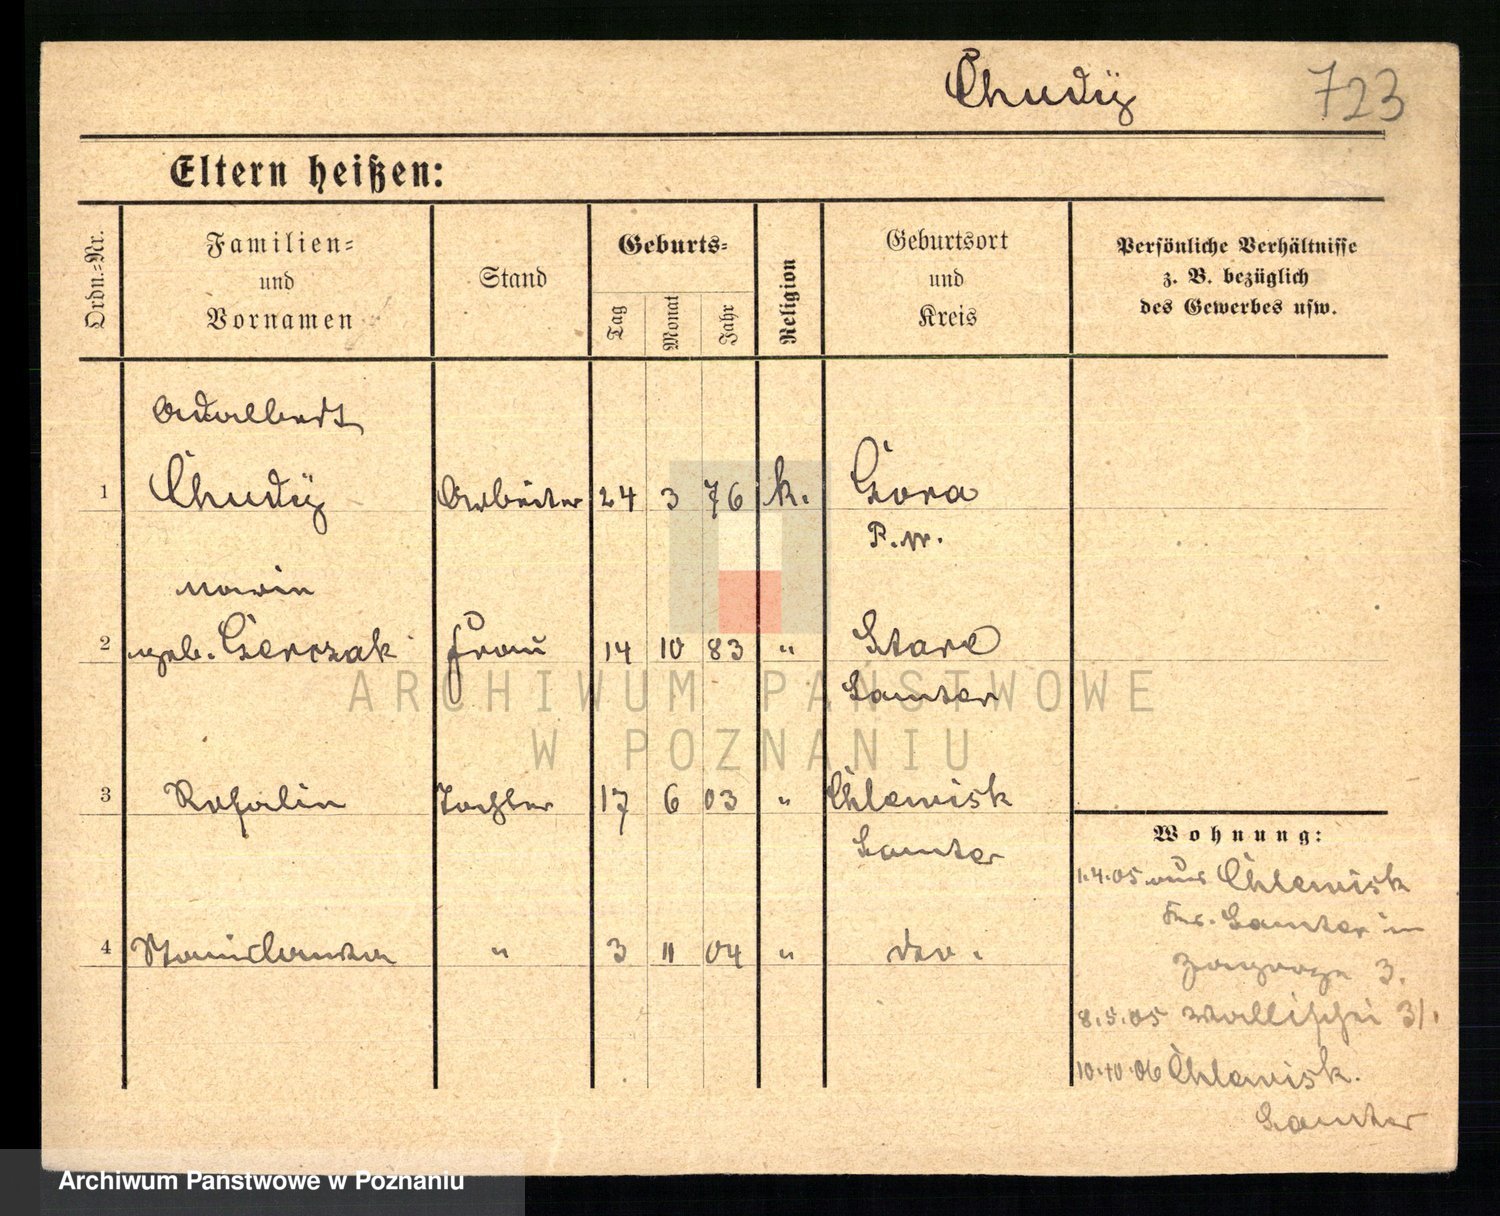 Chudÿ 723
Eltern heißen:
Ordn.=Nr.
Familien=
und
Vornamen
Stand
Geburts=
Tag
Monat
Jahr
Religion
Geburtsort
und
Kreis
Persönliche Verhältnisse
z. B. bezüglich
des Gewerbes usw.
Adalbert
1 Chudÿ Arbeiter 24 3 76 k. Góra
P. W.
Marie
2 geb. Gierczak Frau 14 10 83 " Stare
Samter
3 Rosalie Tochter 17 6 03 " Chlewisk
Samter
4 Stanislawa " 3 11 04 " do.
Wohnung:
1.4.05 aus Chlewisk
Krs. Samter in
Zagorze 3.
8.5.05 Wallischei 31.
10.10.06 Chlewisk.
Samter
ARCHIWUM PAŃSTWOWE
W POZNANIU
Archiwum Państwowe w Poznaniu